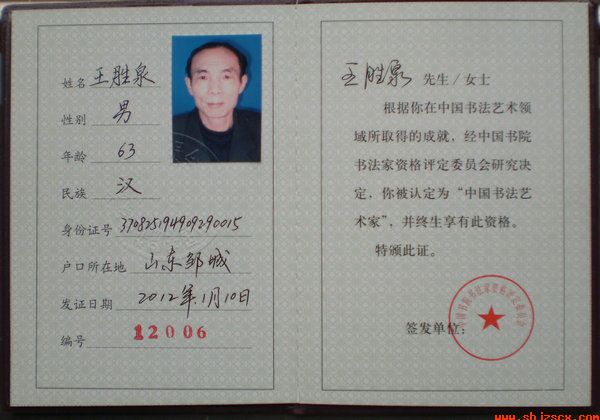 姓名 王胜泉
性别 男
年龄 63
民族 汉
身份证号 370825194909290015
户口所在地 山东邹城
发证日期 2012年1月10日
编号 12006
王胜泉 先生/女士
根据你在中国书法艺术领
域所取得的成就，经中国书院
书法家资格评定委员会研究决
定，你被认定为“中国书法艺
术家”，并终生享有此资格。
特颁此证。
签发单位：
中国书院书法家资格评定委员会
www.shjzscx.com